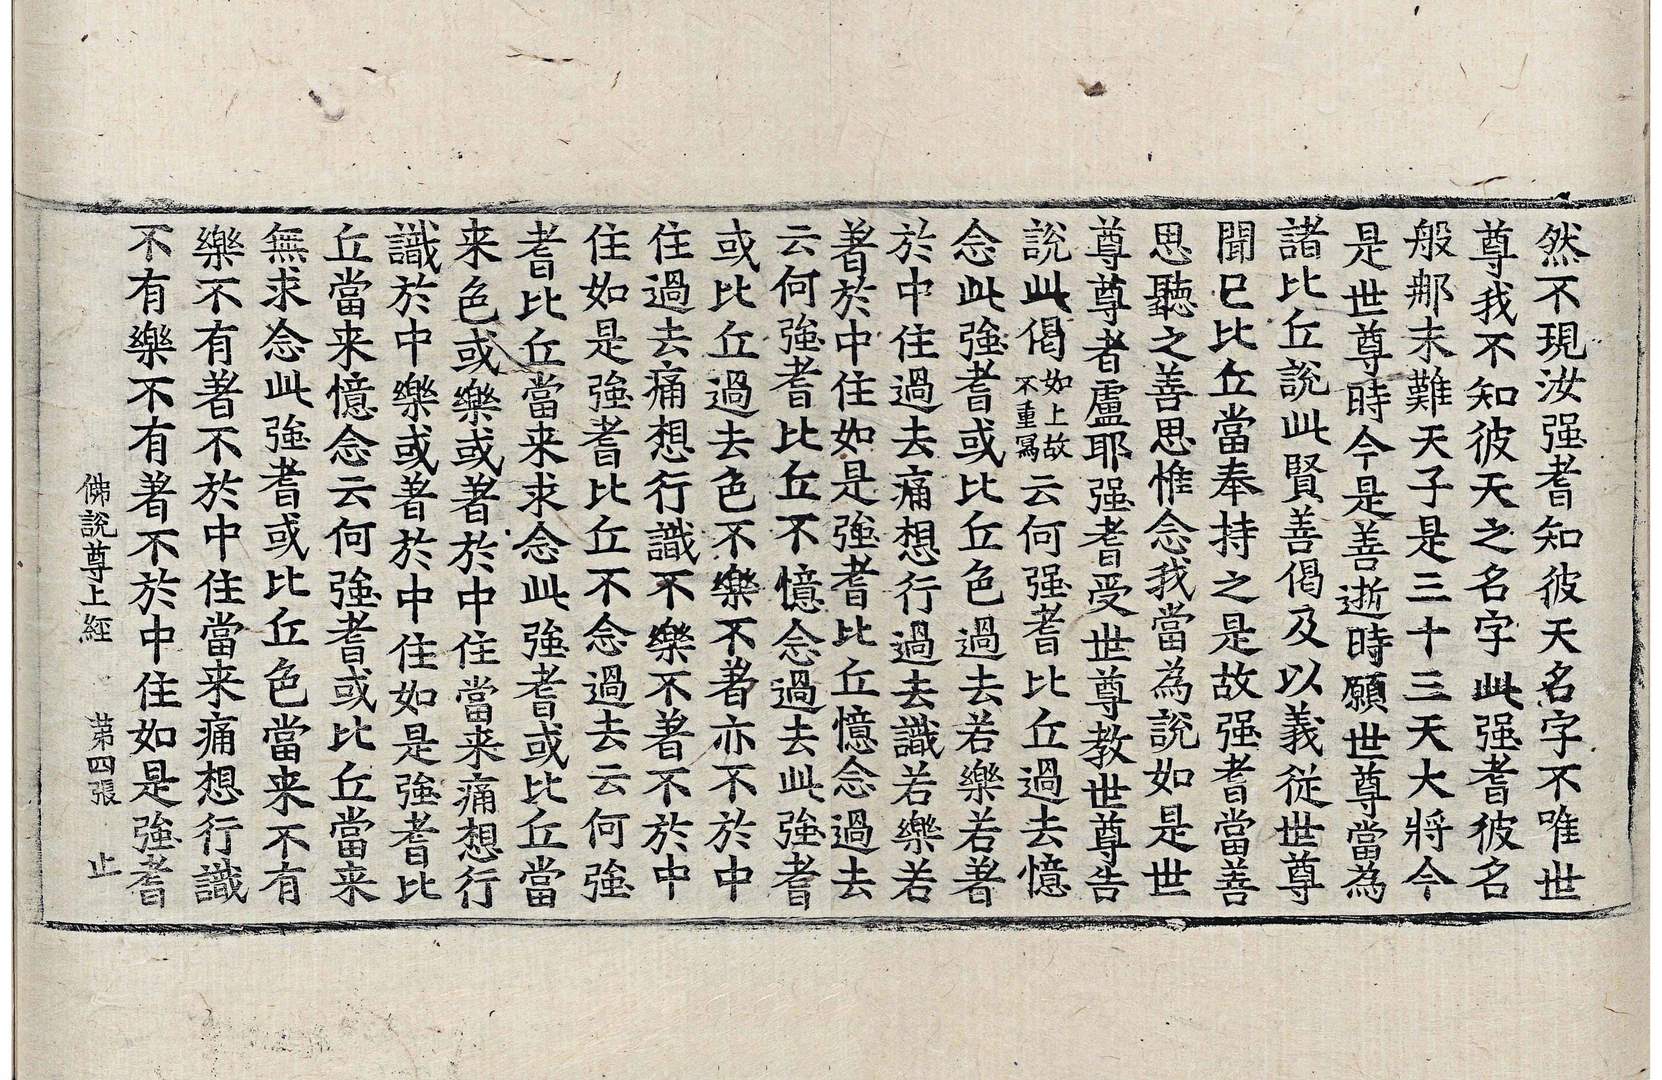 然不現汝强耆知彼天名字不唯世
尊我不知彼天之名字此强耆彼名
般郍末難天子是三十三天大將今
是世尊時今是善逝時願世尊當為
諸比丘說此賢善偈及以義從世尊
聞已比丘當奉持之是故强耆當善
思聽之善思惟念我當為說如是世
尊尊者盧耶强耆受世尊教世尊告
說此偈如上故不重寫云何强耆比丘過去憶
念此強耆或比丘色過去若樂若著
於中住過去痛想行過去識若樂若
著於中住如是強耆比丘憶念過去
云何強耆比丘不憶念過去此強耆
或比丘過去色不樂不著亦不於中
住過去痛想行識不樂不著不於中
住如是強耆比丘不念過去云何強
耆比丘當来求念此強耆或比丘當
来色或樂或著於中住當来痛想行
識於中樂或著於中住如是強耆比
丘當来憶念云何強耆或比丘當来
無求念此強耆或比丘色當来不有
樂不有著不於中住當来痛想行識
不有樂不有著不於中住如是強耆
佛說尊上經 苐四張 止